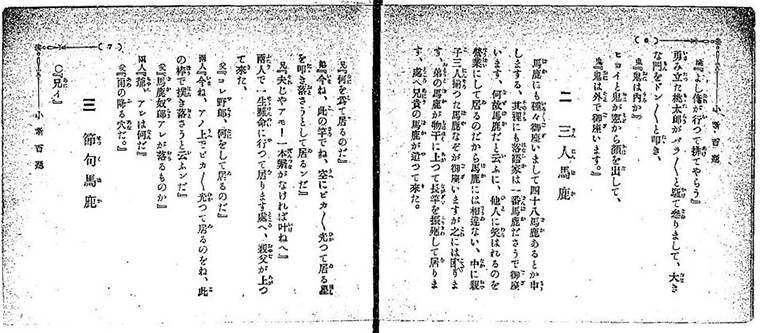 (6)
小噺百題
鬼『よし俺が行つて捧てやらう』
勇み立た桃太郎がバラ〳〵と駆て參りまして、大き
な門をドン〳〵と叩き、
鬼『鬼は内か』
ヒョイと鬼が窓から顔を出して、
鬼『鬼は外で御座います。』
二 三人馬鹿
馬鹿にも種々御座いまして四十八馬鹿あるとか申
しまする、其裡にも落語家は一番馬鹿ださうで御座
います、何故馬鹿だと云ふに、他人に笑はれるのを
營業にして居るのだから馬鹿には相違ない、中に親
子三人揃つた馬鹿なぞが御座いますが之には困りま
す、弟の馬鹿が物干に上つて長竿を振廻して居りま
す、處へ兄貴の馬鹿が追つて來た。
(7)
小噺百題
兄『何を爲て居るのだ』
弟『今ね、此の竿でね、空にピカ〳〵光つて居る星
を叩き落さうとして居るンだ』
兄『夫じやアモー一本繋がなければ叶ねへ』
兩人で一生懸命に行つて居ります處へ、親父が上つ
て來た。
父『コレ野郎、何をして居るのだ』
兩人『今ね、アノ上でピカ〳〵光つて居るのをね、此
の棒で撲き落さうと云ふンだ』
父『馬鹿奴郎アレが落るものか』
兩人『爺、アレは何だ』
父『雨の降る穴だ。』
三 節句馬鹿
〇『兄イ』